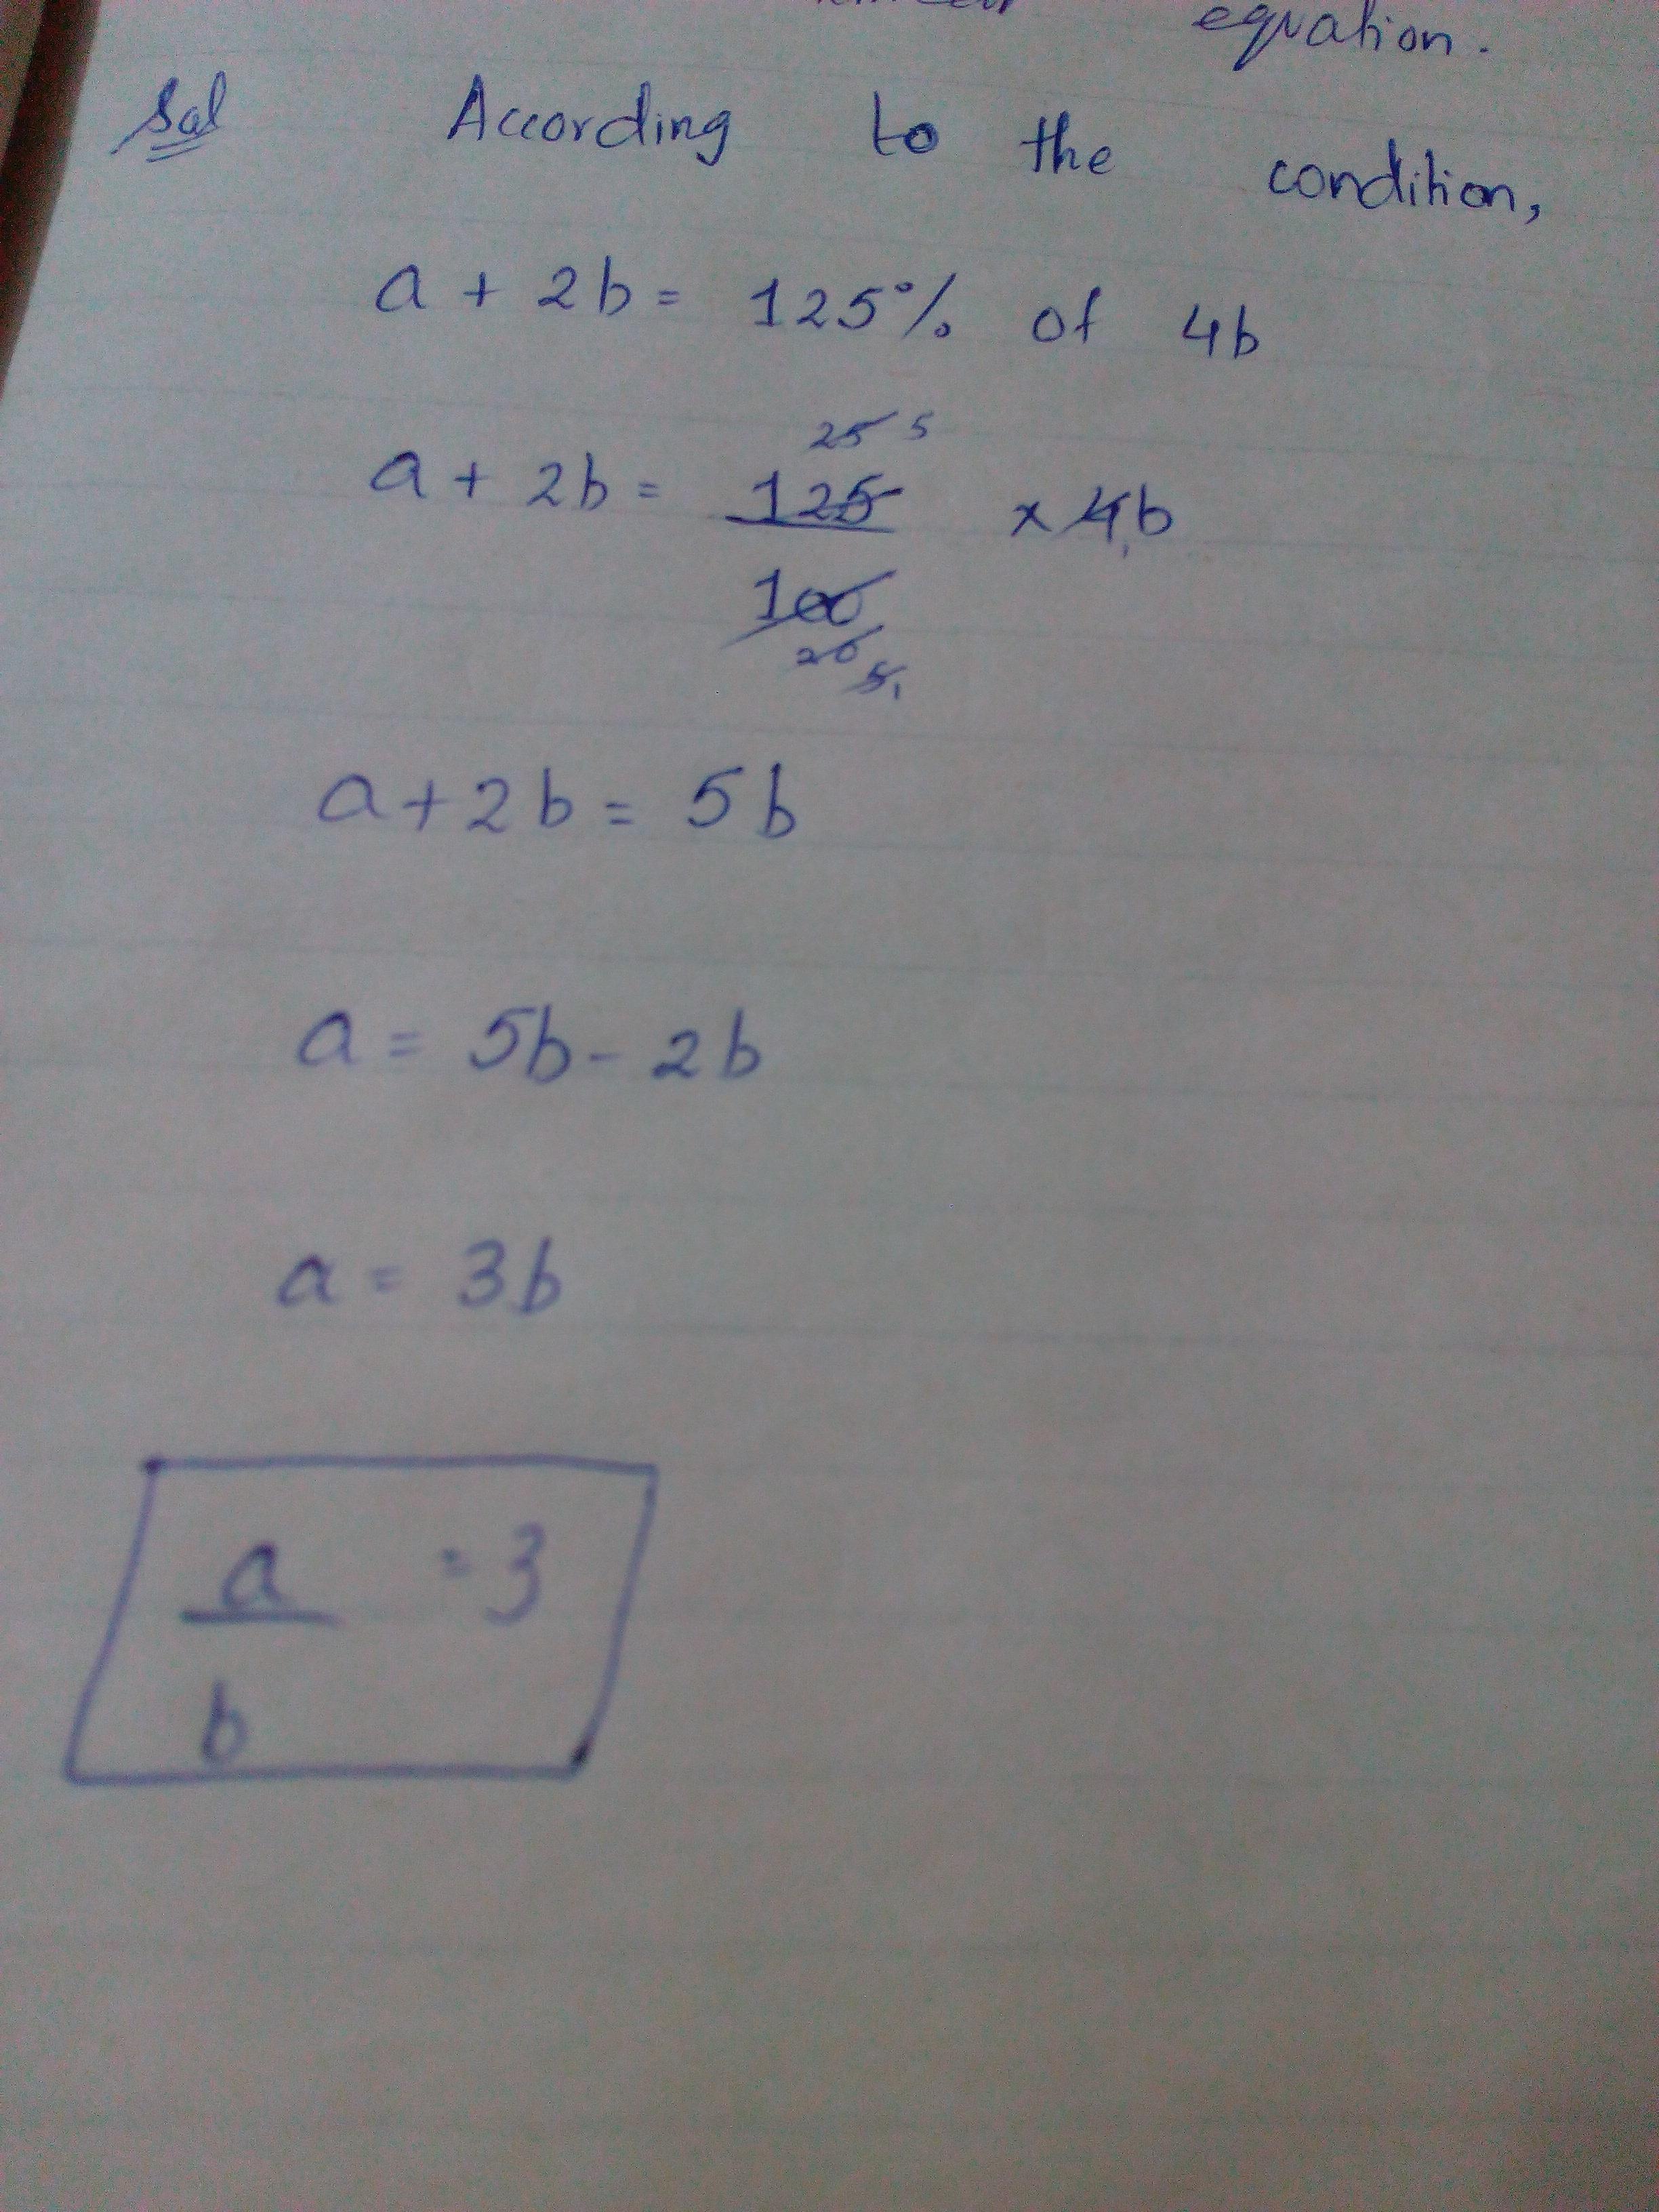 equation.
Sol According to the condition,
a + 2b = 125% of 4b
25 5
a + 2b = 125 × 4b
100
20 5 1
a + 2b = 5b
a = 5b - 2b
a = 3b
a = 3
b